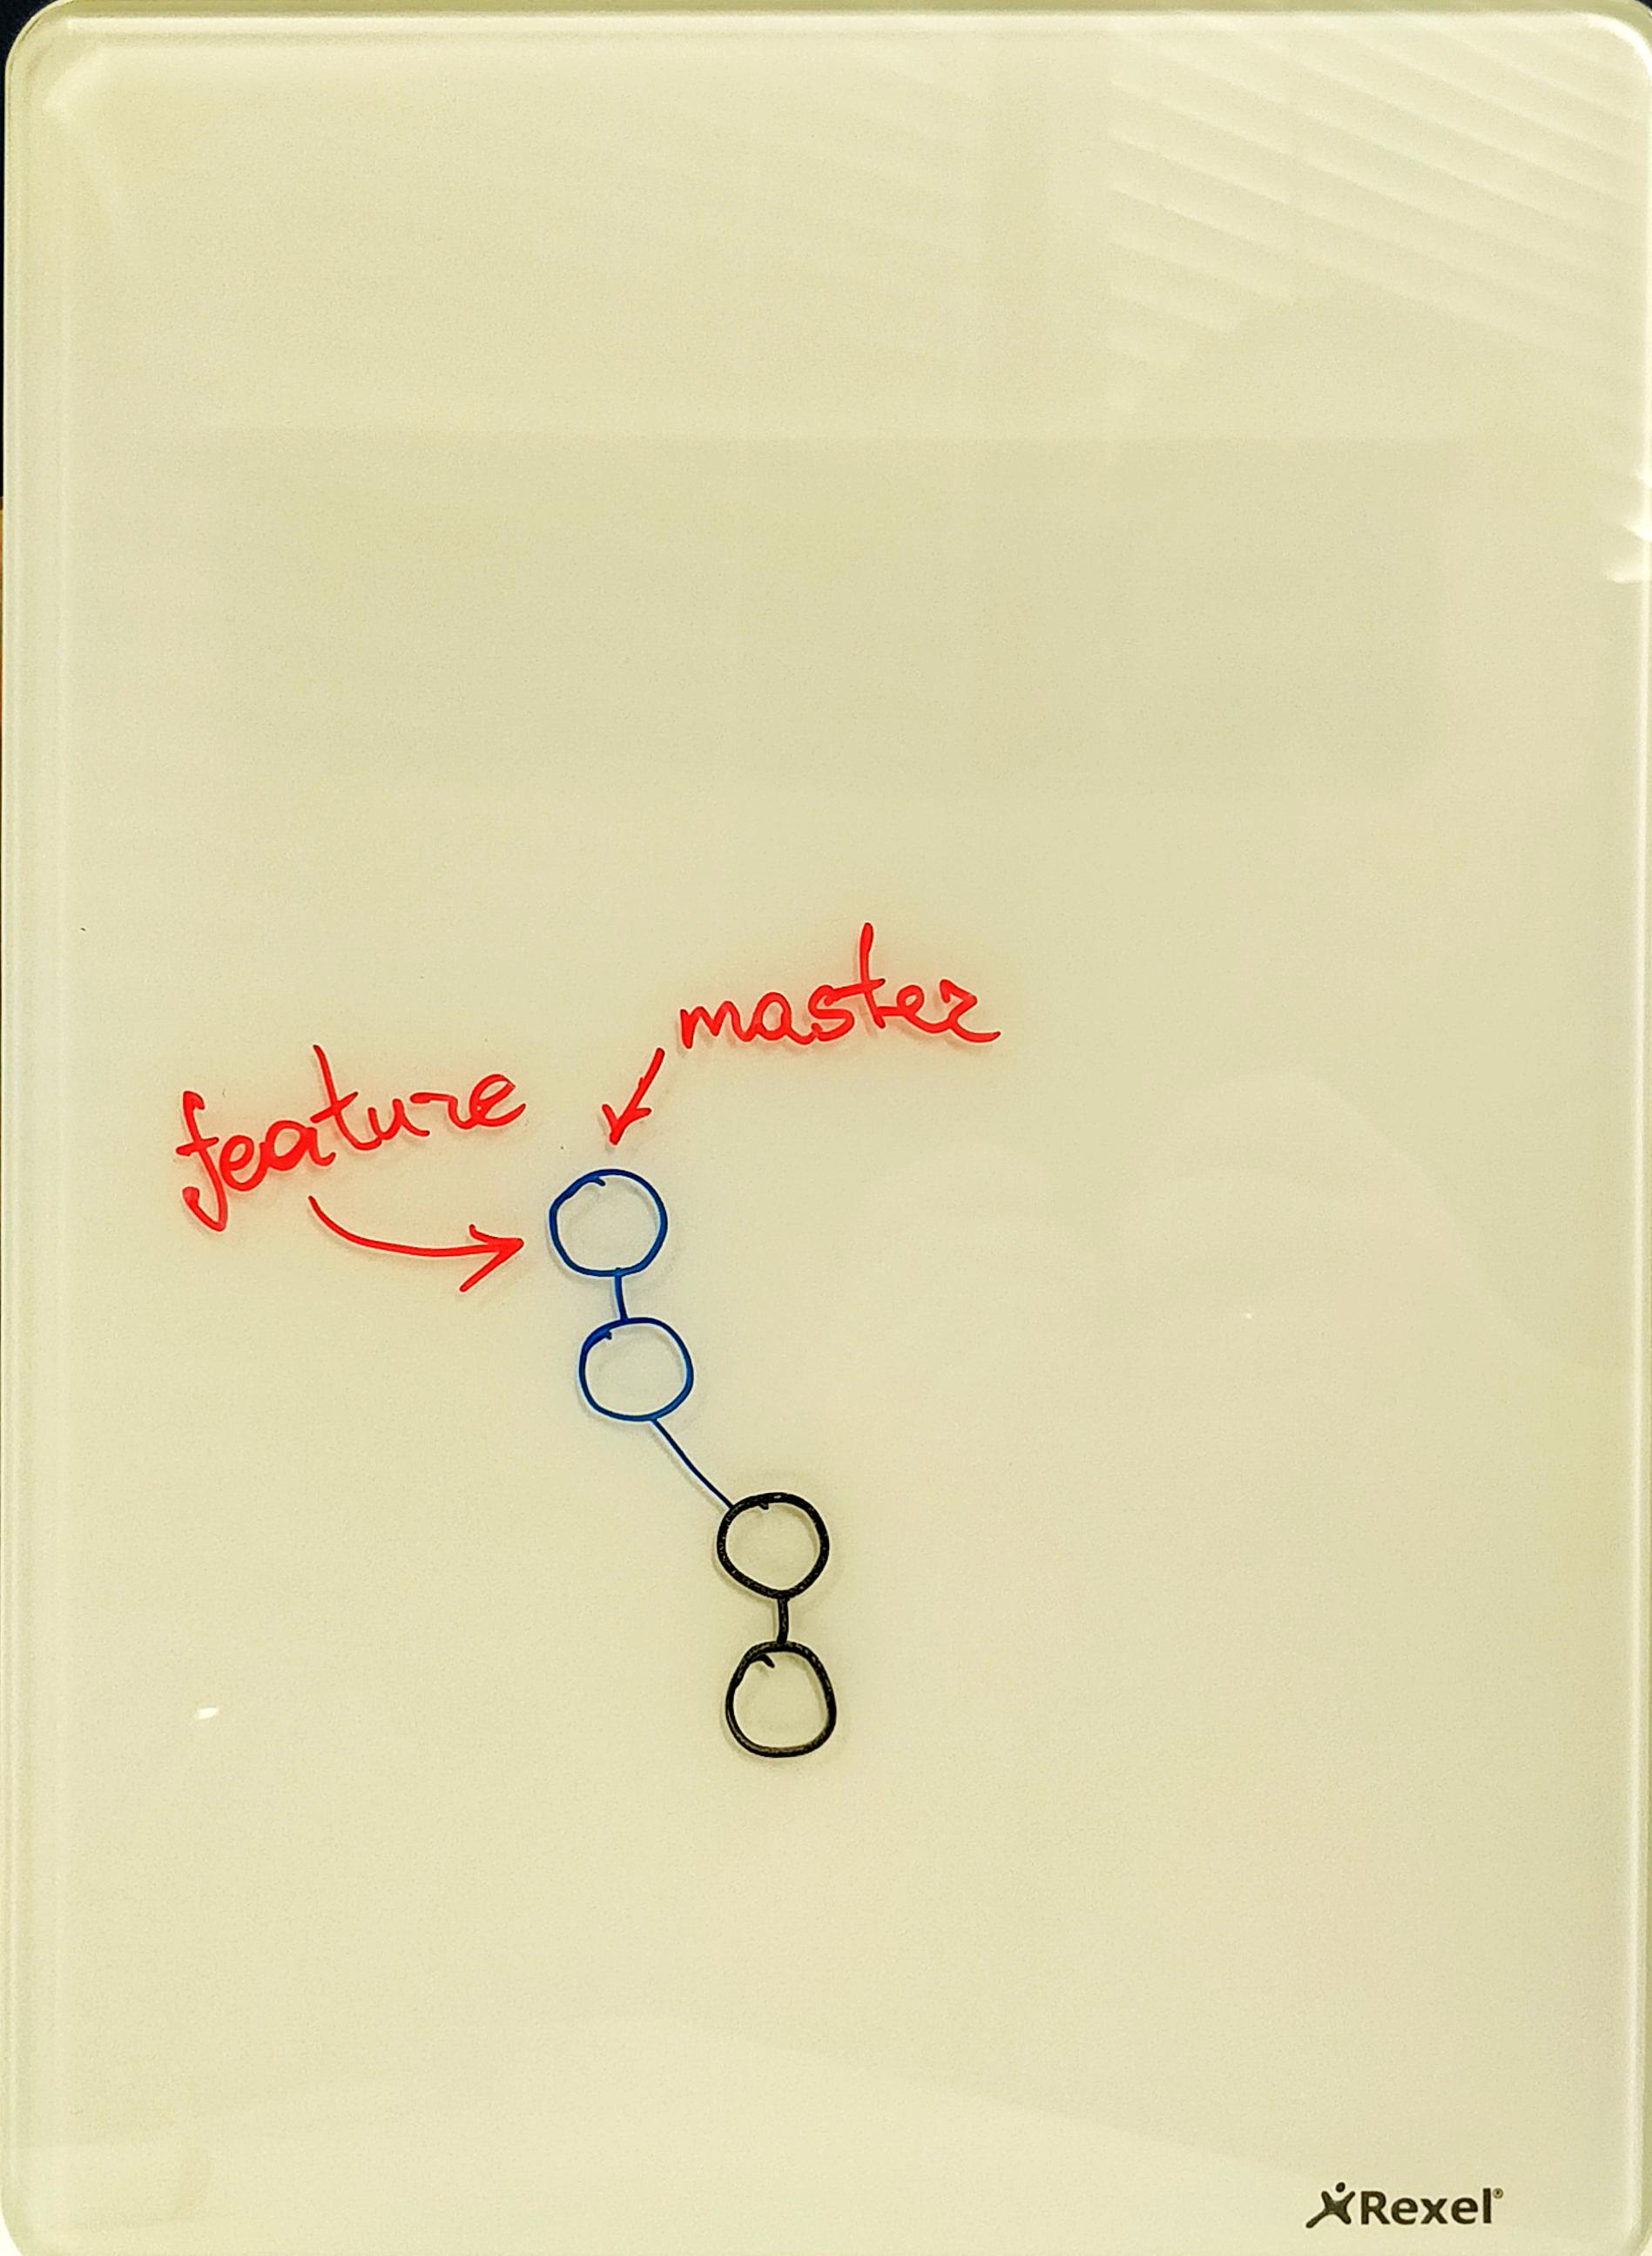 master
feature
Rexel®